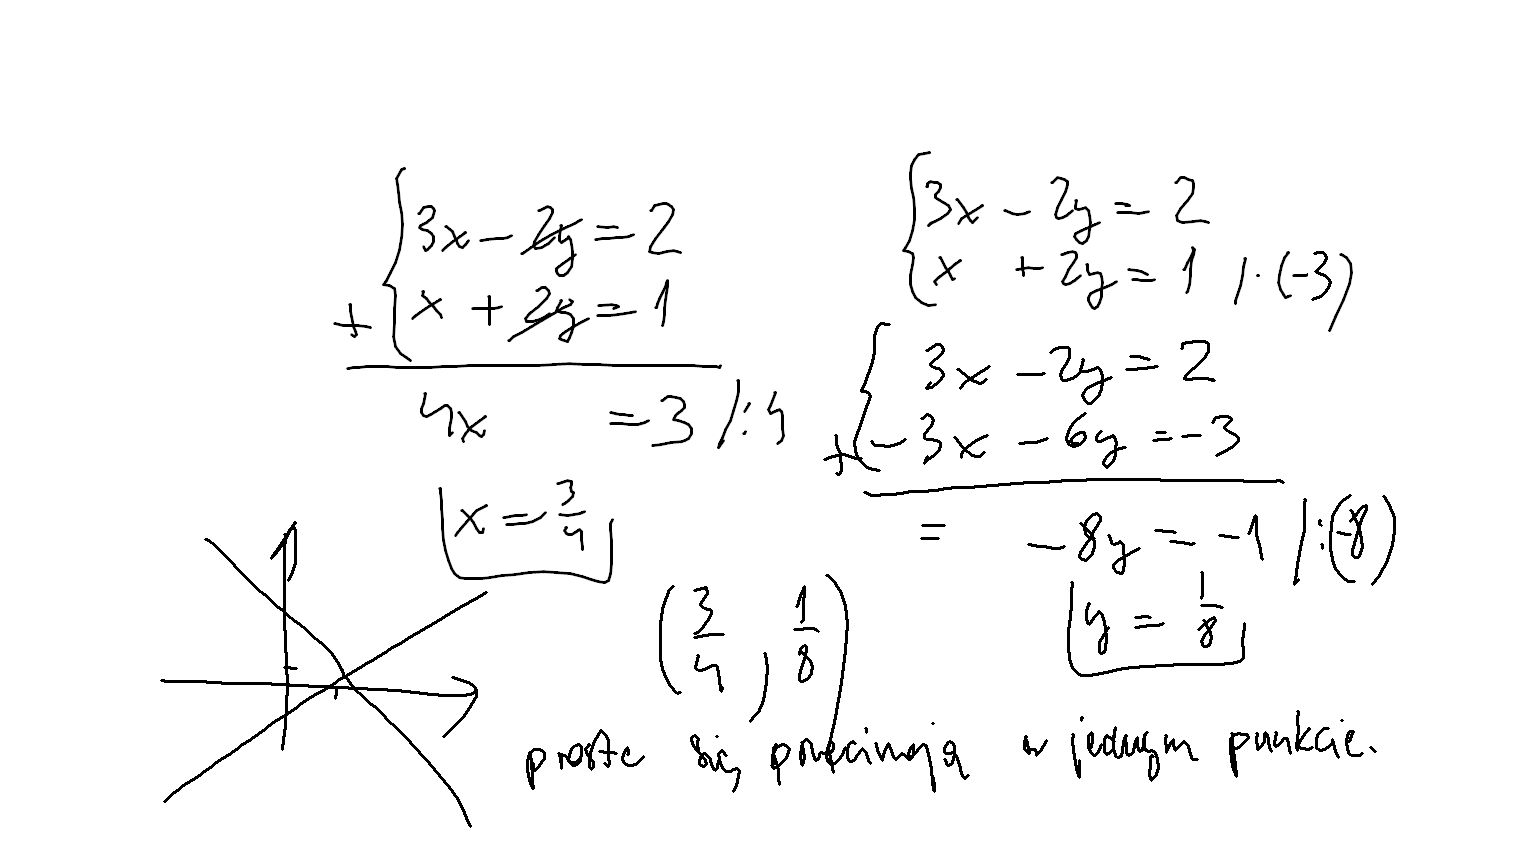 3x - 2y = 2
x + 2y = 1
+
4x = 3 /:4
x = 3/4
3x - 2y = 2
x + 2y = 1 /·(-3)
3x - 2y = 2
+ -3x - 6y = -3
= -8y = -1 /:(-8)
y = 1/8
(3/4, 1/8)
proste się przecinają w jednym punkcie.